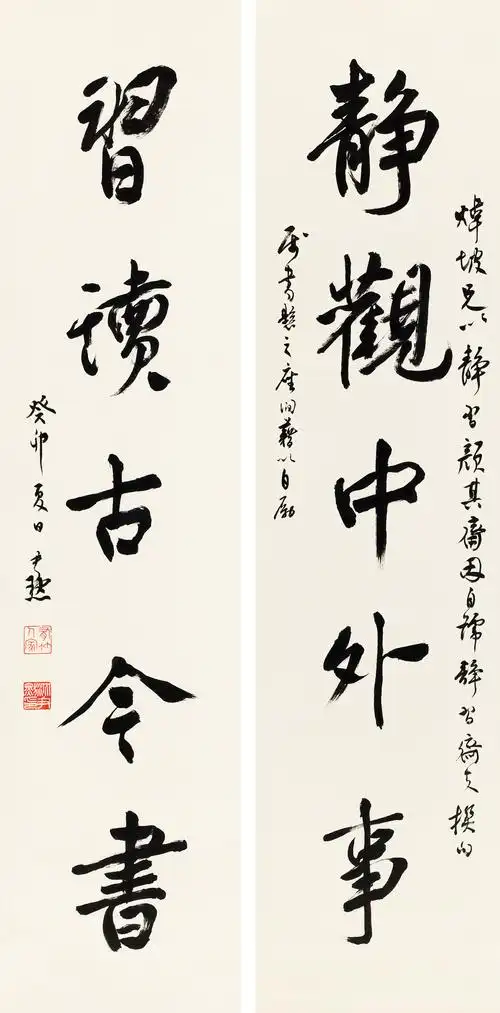 煒坡兄以靜習顏其齋因自號靜習齋撰句
靜觀中外事
屬書懸之座間藉以自勵
習讀古今書
癸卯夏日 尹默